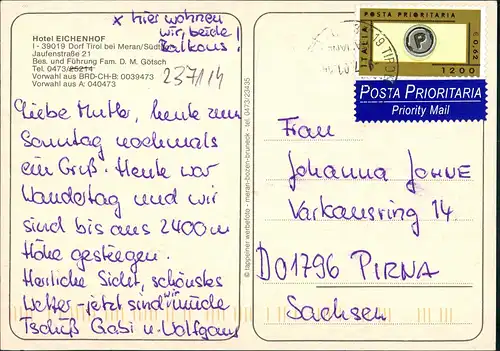 x hier wohnen
wir, beide!
Balkons!
Hotel EICHENHOF
I - 39019 Dorf Tirol bei Meran/Südtirol
Jaufenstraße 21
Bes. und Führung Fam. D. M. Götsch
Tel. 0473/25214
Vorwahl aus BRD-CH-B: 0039473
Vorwahl aus A: 040473
237/14
Liebe Mutter, heute zum
Sonntag nochmals
ein Gruß. Heute war
Wandertag und wir
sind bis aus 2400 m
Höhe gestiegen.
Herrliche Sicht, schönstes
Wetter - jetzt sind wir müde
Tschüß Gabi u. Wolfgang
© tappeiner werbefoto - meran-bozen-bruneck - tel. 0473/23435
POSTA PRIORITARIA
ITALIA
P
€ 0,62
1200
19 TIROL
POSTA PRIORITARIA
Priority Mail
Frau
Johanna JOHNE
Varkausring 14
D01796 PIRNA
Sachsen